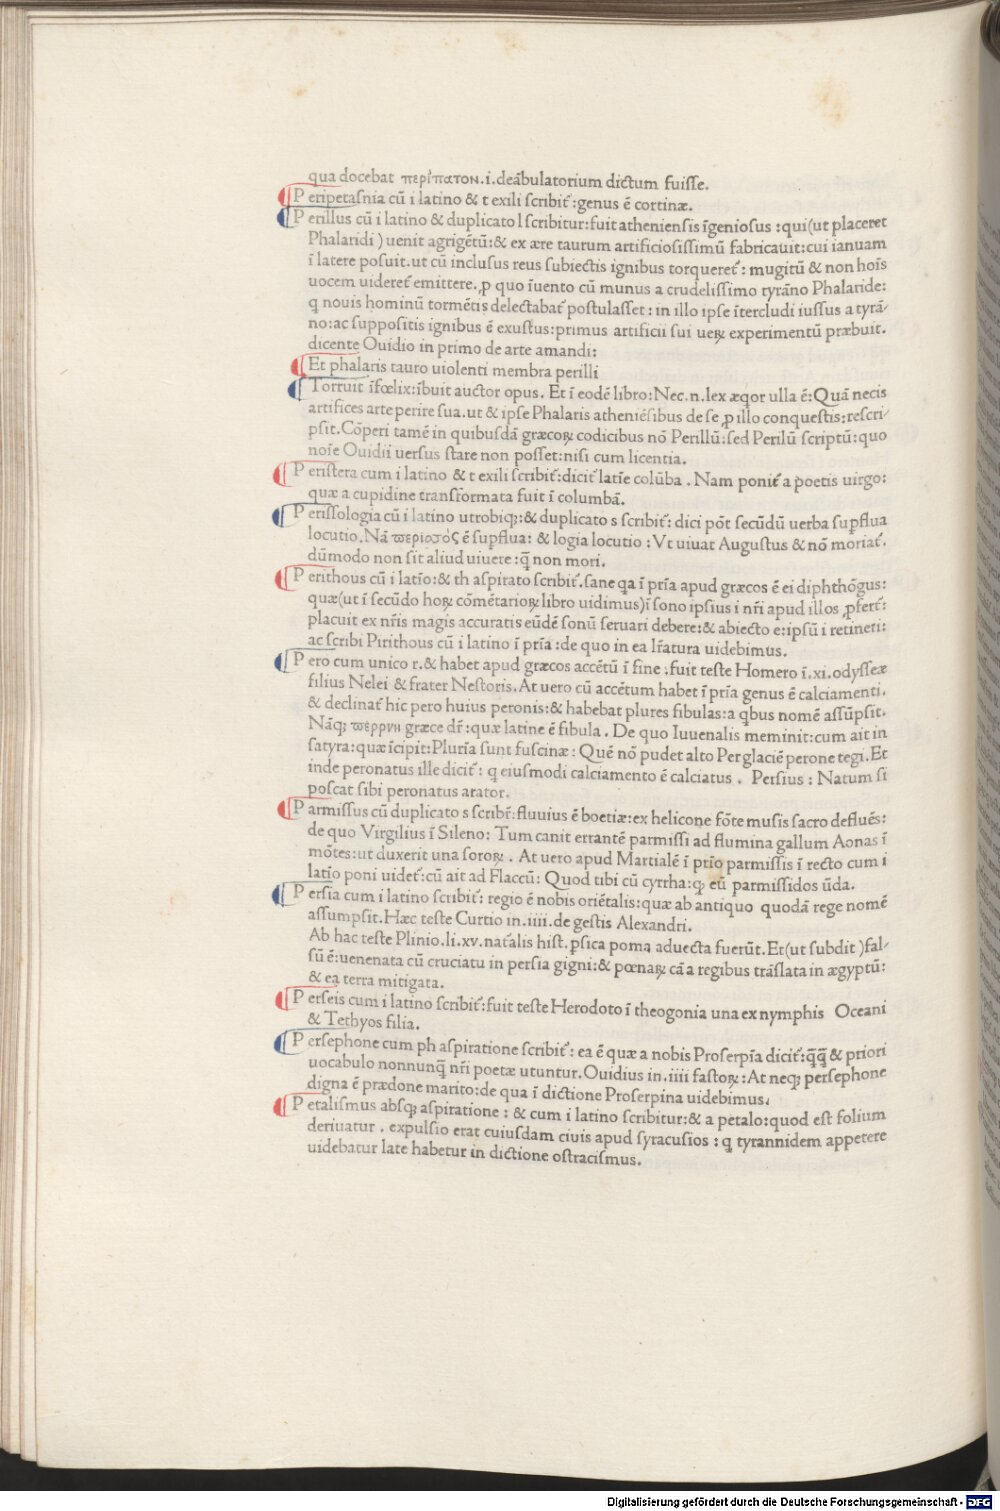 qua docebat περίπατον.i.deābulatorium dictum fuiſſe.
Peripetaſnia cū i latino & t exili ſcribit᷑:genus ē cortinæ.
Perillus cū i latino & duplicato l ſcribitur:fuit athenienſis īgenioſus :qui(ut placeret
Phalaridi ) uenit agrigētū:& ex ære taurum artificioſiſſimū fabricauit:cui ianuam
ī latere poſuit.ut cū incluſus reus ſubiectis ignibus torqueret᷑: mugitū & non hoīs
uocem uideret᷑ emittere. ꝓ quo īuento cū munus a crudeliſſimo tyrāno Phalaride:
q nouis hominū tormētis delectabat᷑ poſtulaſſet: in illo ipſe ītercludi iuſſus a tyrā/
no:ac ſuppoſitis ignibus ē exuſtus:primus artificii ſui ueꝝ experimentū præbuit.
dicente Ouidio in primo de arte amandi:
Et phalaris tauro uiolenti membra perilli
Torruit īfœlix:ībuit auctor opus. Et ī eodē libro:Nec.n.lex æqor ulla ē:Quā necis
artifices arte perire ſua.ut & ipſe Phalaris atheniēſibus de ſe ꝓ illo conqueſtis:reſcri/
pſit.Cōperi tamē in quibuſdā græcoꝝ codicibus nō Perillū:ſed Perilū ſcriptū:quo
noīe Ouidii uerſus ſtare non poſſet:niſi cum licentia.
Periſtera cum i latino & t exili ſcribit᷑:dicit᷑ latīe colūba . Nam ponit᷑ a poetis uirgo:
quæ a cupidine transformata fuit ī columbā.
Periſſologia cū i latino utrobiqꝫ:& duplicato s ſcribit᷑: dici pōt ſecūdū uerba ſupflua
locutio.Nā ϖερισσὸς ē ſupflua: & logia locutio :Vt uiuat Auguſtus & nō moriat᷑.
dūmodo non ſit aliud uiuere :q̄ non mori.
Perithous cū i latīo:& th aſpirato ſcribit᷑.ſane qa ī prīa apud græcos ē ei diphthōgus:
quæ(ut ī ſecūdo hoꝝ cōmētarioꝝ libro uidimus)ī ſono ipſius i nr̄i apud illos ꝓfert᷑:
placuit ex nr̄is magis accuratis eūdē ſonū ſeruari debere:& abiecto e:ipſū i retineri:
ac ſcribi Pirithous cū i latino ī prīa :de quo in ea lr̄atura uidebimus.
Pero cum unico r.& habet apud græcos accētū ī fine .fuit teſte Homero ī.xi.odyſſeæ
filius Nelei & frater Neſtoris.At uero cū accētum habet ī prīa genus ē calciamenti.
& declinat᷑ hic pero huius peronis:& habebat plures fibulas:a qbus nomē aſſūpſit.
Nāqꝫ ϖερρνη græce dr̄:quæ latine ē fibula . De quo Iuuenalis meminit:cum ait in
ſatyra:quæ īcipit:Plurīa ſunt fuſcinæ: Quē nō pudet alto Per glaciē perone tegi.Et
inde peronatus ille dicit᷑: q eiuſmodi calciamento ē calciatus . Perſius : Natum ſi
poſcat ſibi peronatus arator.
Parmiſſus cū duplicato s ſcribr̄:fluuius ē boetiæ:ex helicone fōte muſis ſacro defluēs:
de quo Virgilius ī Sileno: Tum canit errantē parmiſſi ad flumina gallum Aonas ī
mōtes:ut duxerit una ſoroꝝ . At uero apud Martialē ī prīo parmiſſis ī recto cum i
latīo poni uidet᷑:cū ait ad Flaccū: Quod tibi cū cyrrha:qd eū parmiſſidos ūda.
Perſia cum i latino ſcribit᷑: regio ē nobis oriētalis:quæ ab antiquo quodā rege nomē
aſſumpſit.Hæc teſte Curtio in.iiii.de geſtis Alexandri.
Ab hac teſte Plinio.li.xv.naťalis hiſt.ꝑſica poma aduecta fuerūt.Et(ut ſubdit )fal/
ſū ē:uenenata cū cruciatu in perſia gigni:& pœnaꝝ cā a regibus trāſlata in ægyptū:
& ea terra mitigata.
Perſeis cum i latino ſcribit᷑:fuit teſte Herodoto ī theogonia una ex nymphis Oceani
& Tethyos filia.
Perſephone cum ph aſpiratione ſcribit᷑: ea ē quæ a nobis Proſerpīa dicit᷑:q̄q̄ & priori
uocabulo nonnunq̄ nr̄i poetæ utuntur.Ouidius in.iiii faſtoꝝ:At neqꝫ perſephone
digna ē prædone marito:de qua ī dictione Proſerpina uidebimus.
Petaliſmus abſqꝫ aſpiratione : & cum i latino ſcribitur:& a petalo:quod eſt folium
deriuatur . expulſio erat cuiuſdam ciuis apud ſyracuſios : q tyrannidem appetere
uidebatur late habetur in dictione oſtraciſmus.
Digitalisierung gefördert durch die Deutsche Forschungsgemeinschaft - DFG